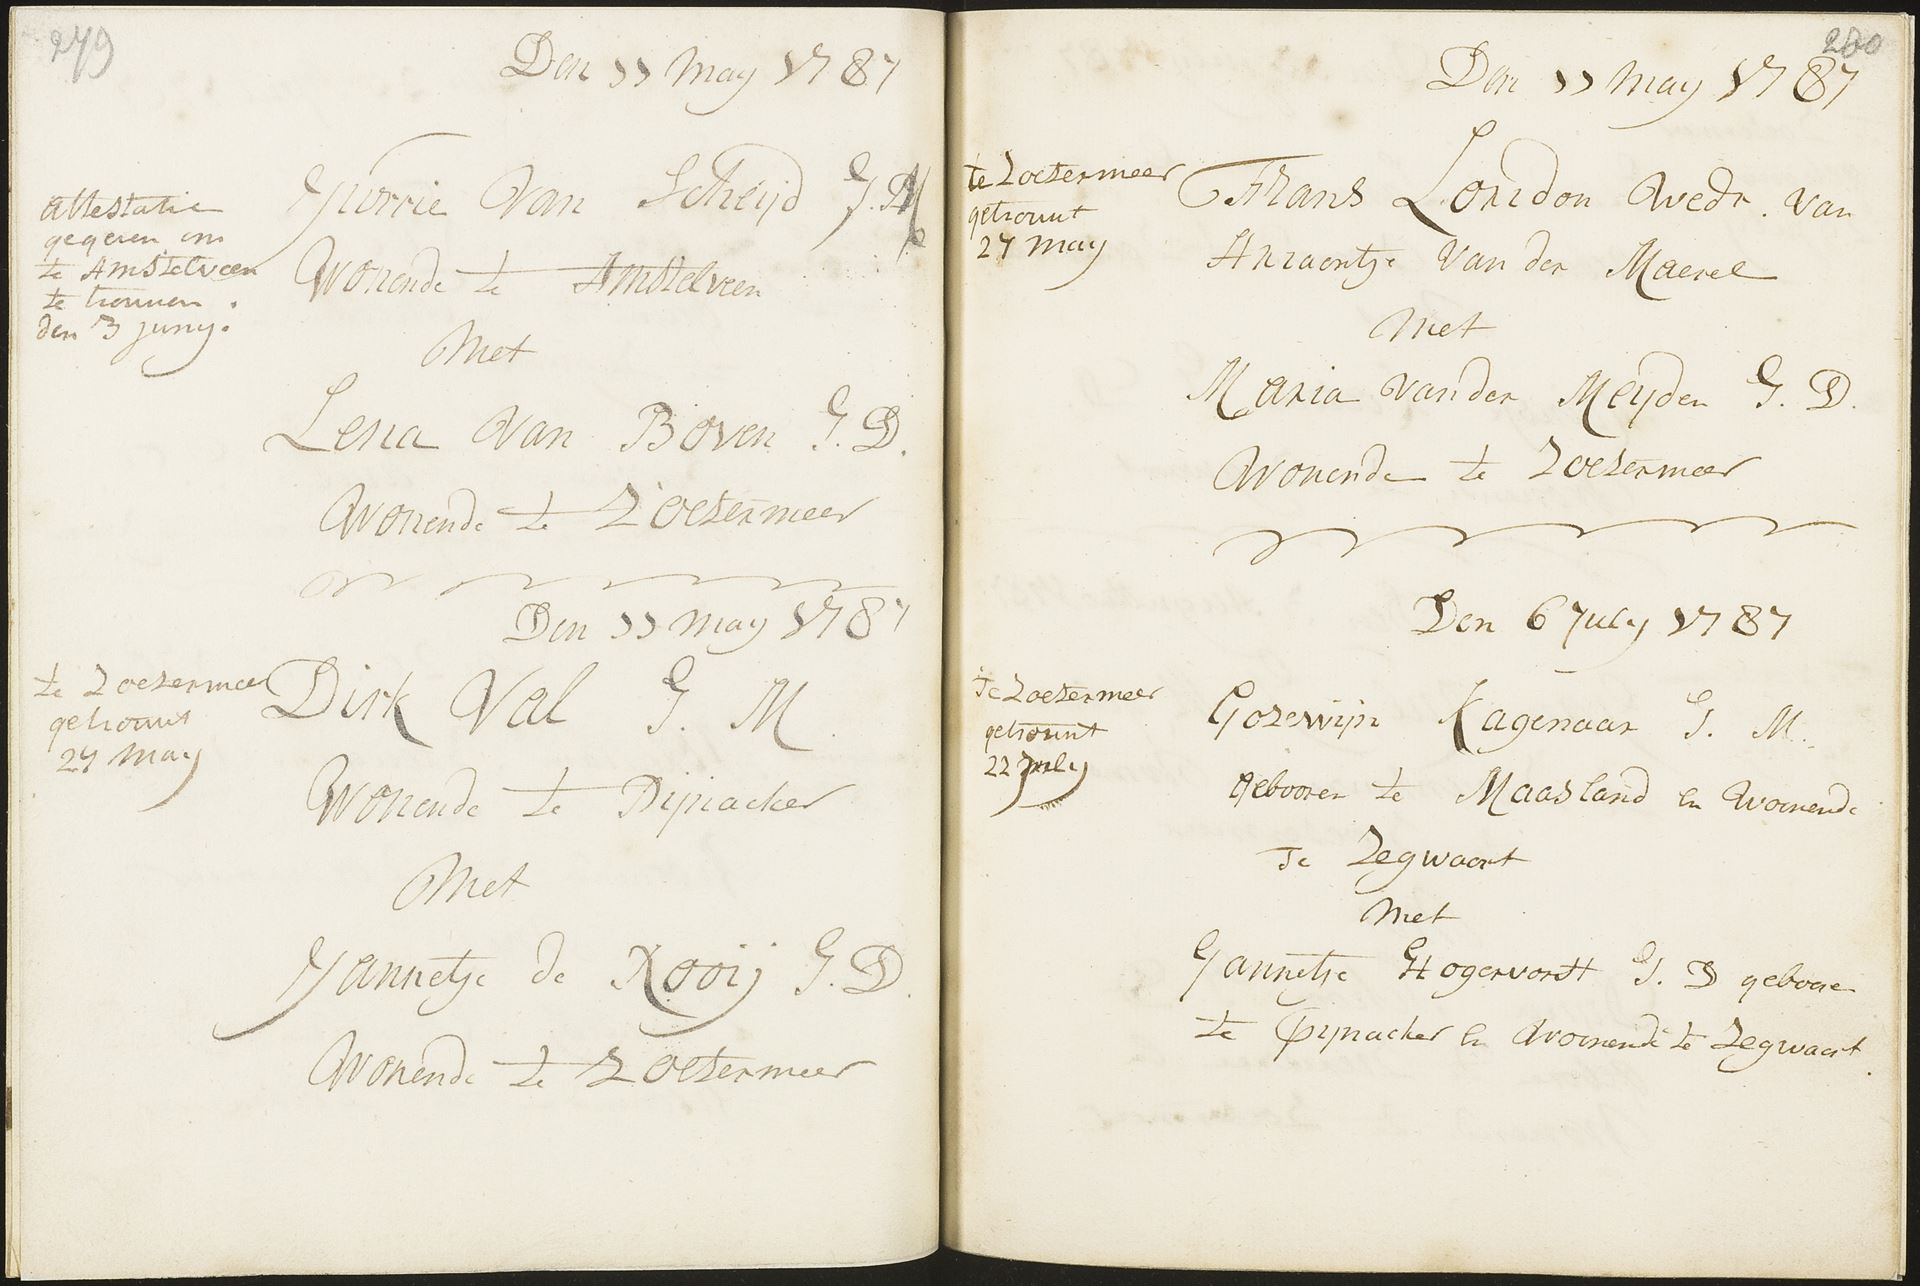 279
Den 11 May 1787
attestatie
gegeven om
te Amstelveen
te trouwen
den 3 juny.
Yurrie Van Scheijd J. M
Wonende te Amstelveen
Met
Lena Van Boven J. D.
Wonende te Zoetermeer
Den 11 May 1787
te Zoetermeer
getrouwt
27 May
Dirk Val J. M.
Wonende te Pijnacker
Met
Yannetje de Kooij J. D.
Wonende te Zoetermeer
280
Den 11 May 1787
te Zoetermeer
getrouwt
27 May
Frans London Wedr. van
Ariaentje Van der Maerel
Met
Maria Van der Meijden J. D.
Wonende te Zoetermeer
Den 6 July 1787
Te Zoetermeer
getrouwt
22 July
Gozewijn Kagenaar J. M.
gebooren te Maasland en Woonende
Te Zegwaart
Met
Jannetje Hogervorst J. D geboore
te Pijnacker en Woonende te Zegwaart.